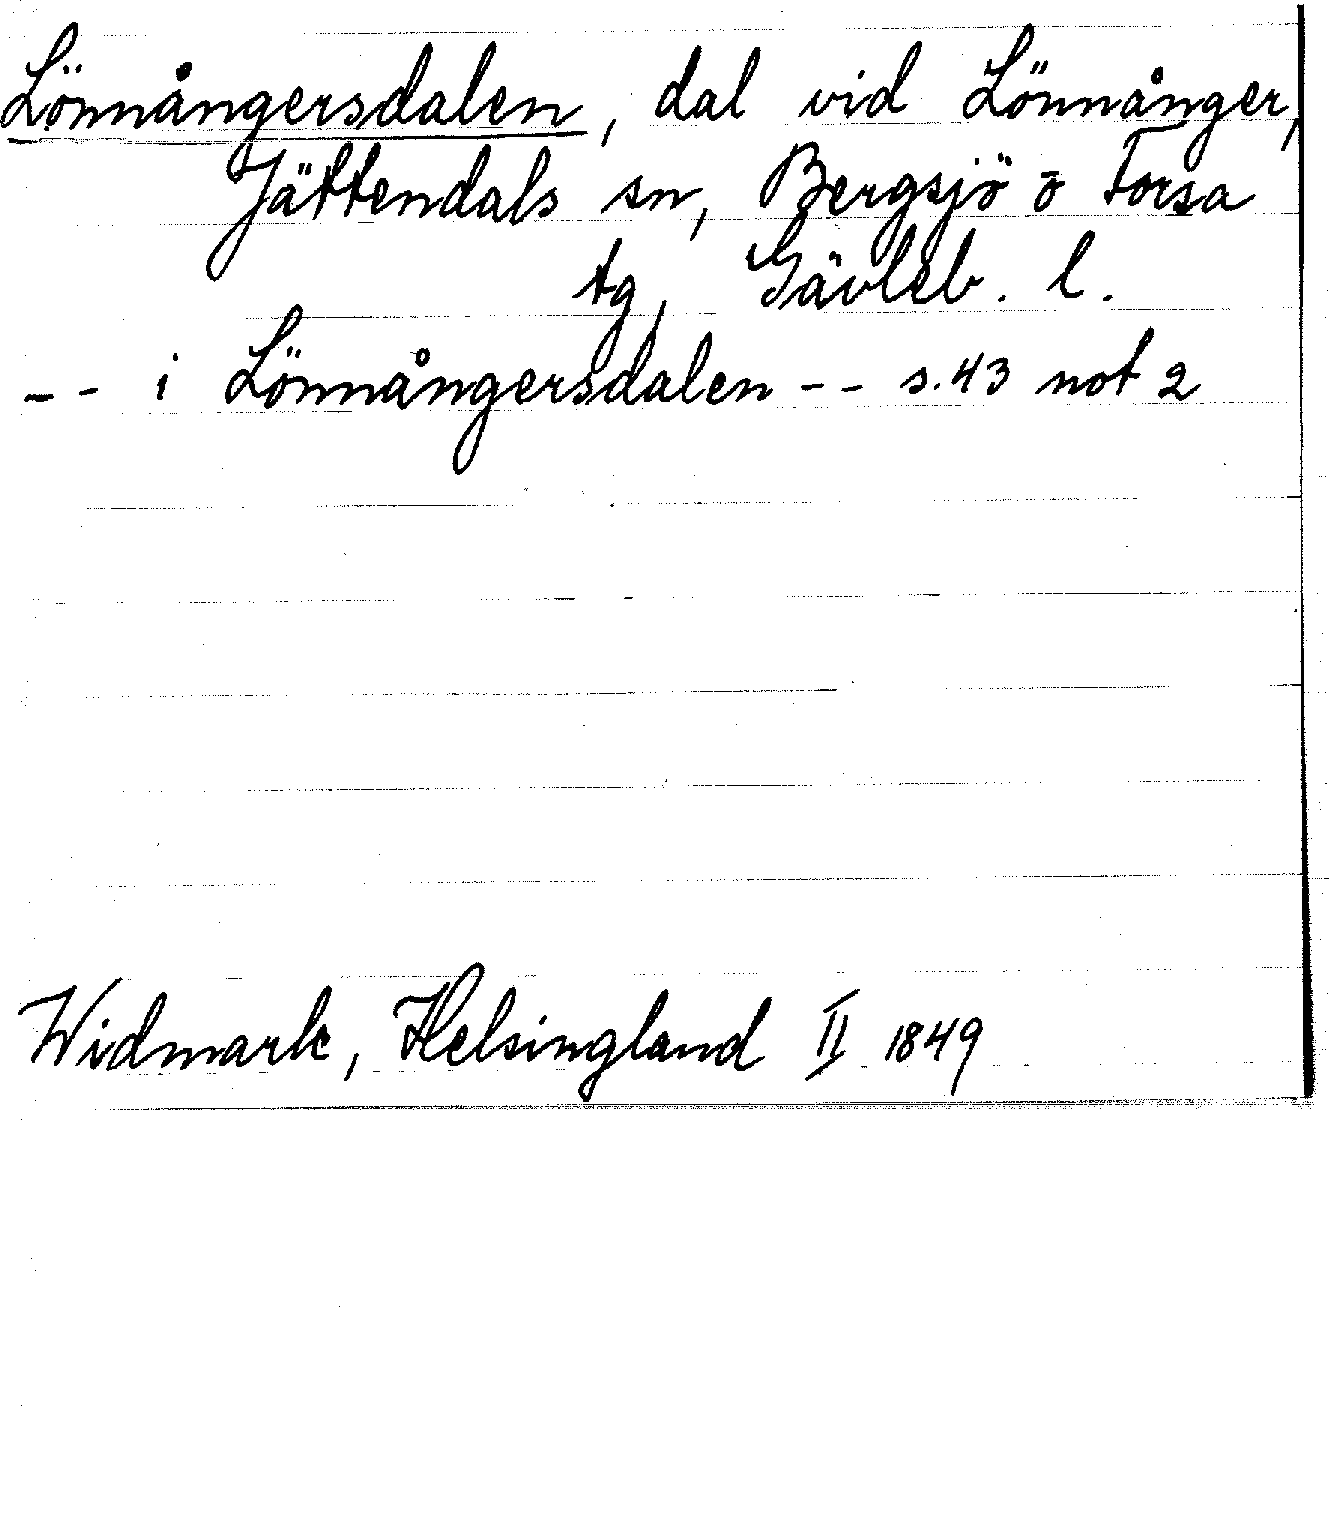 Lönnångersdalen, dal vid Lönnånger,
Jättendals sn, Bergsjö o Forsa
tg, Gävleb. l.
-- i Lönnångersdalen -- s. 43 not 2
Widmark, Helsingland II 1849